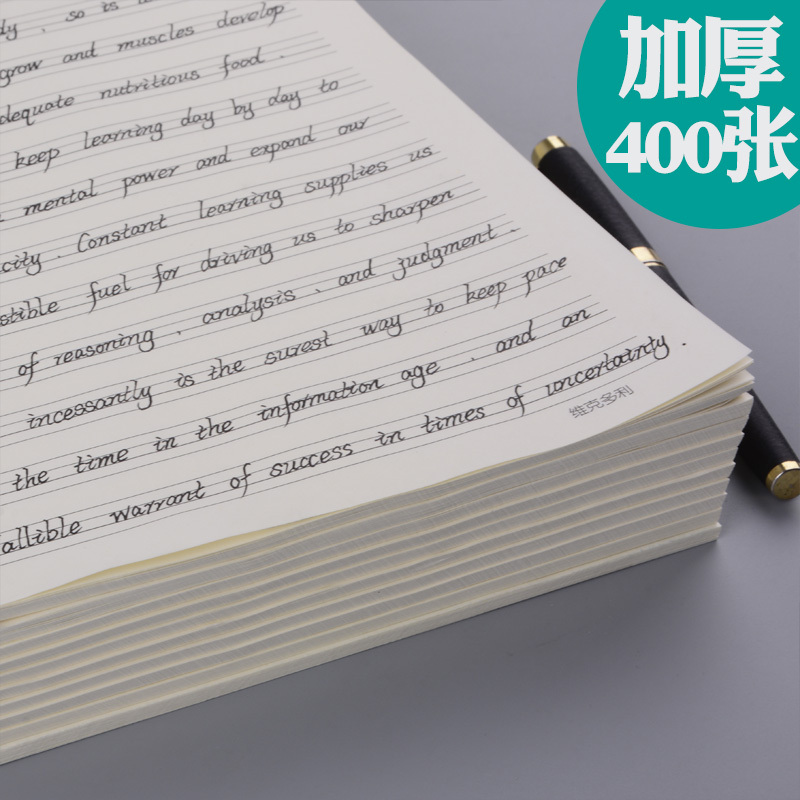 加厚
400张
dy , so is
grow and muscles develop
adequate nutritious food .
keep learning day by day to
mental power and expand our
city . Constant learning supplies us
stible fuel for driving us to sharpen
of reasoning , analysis , and judgment .
incessantly is the surest way to keep pace
the time in the information age , and an
allible warrant of success in times of uncertainty .
维克多利